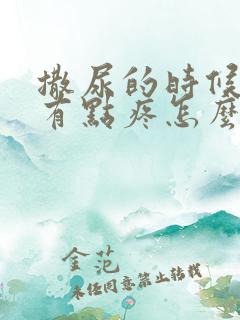 撒尿的時候
有點疼怎麼
金范
未经同意禁止转载